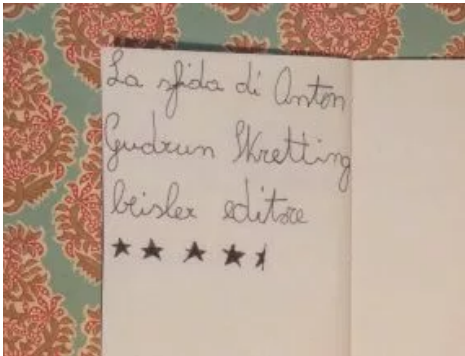 La sfida di Anton
Gudrun Skretting
beisler editore